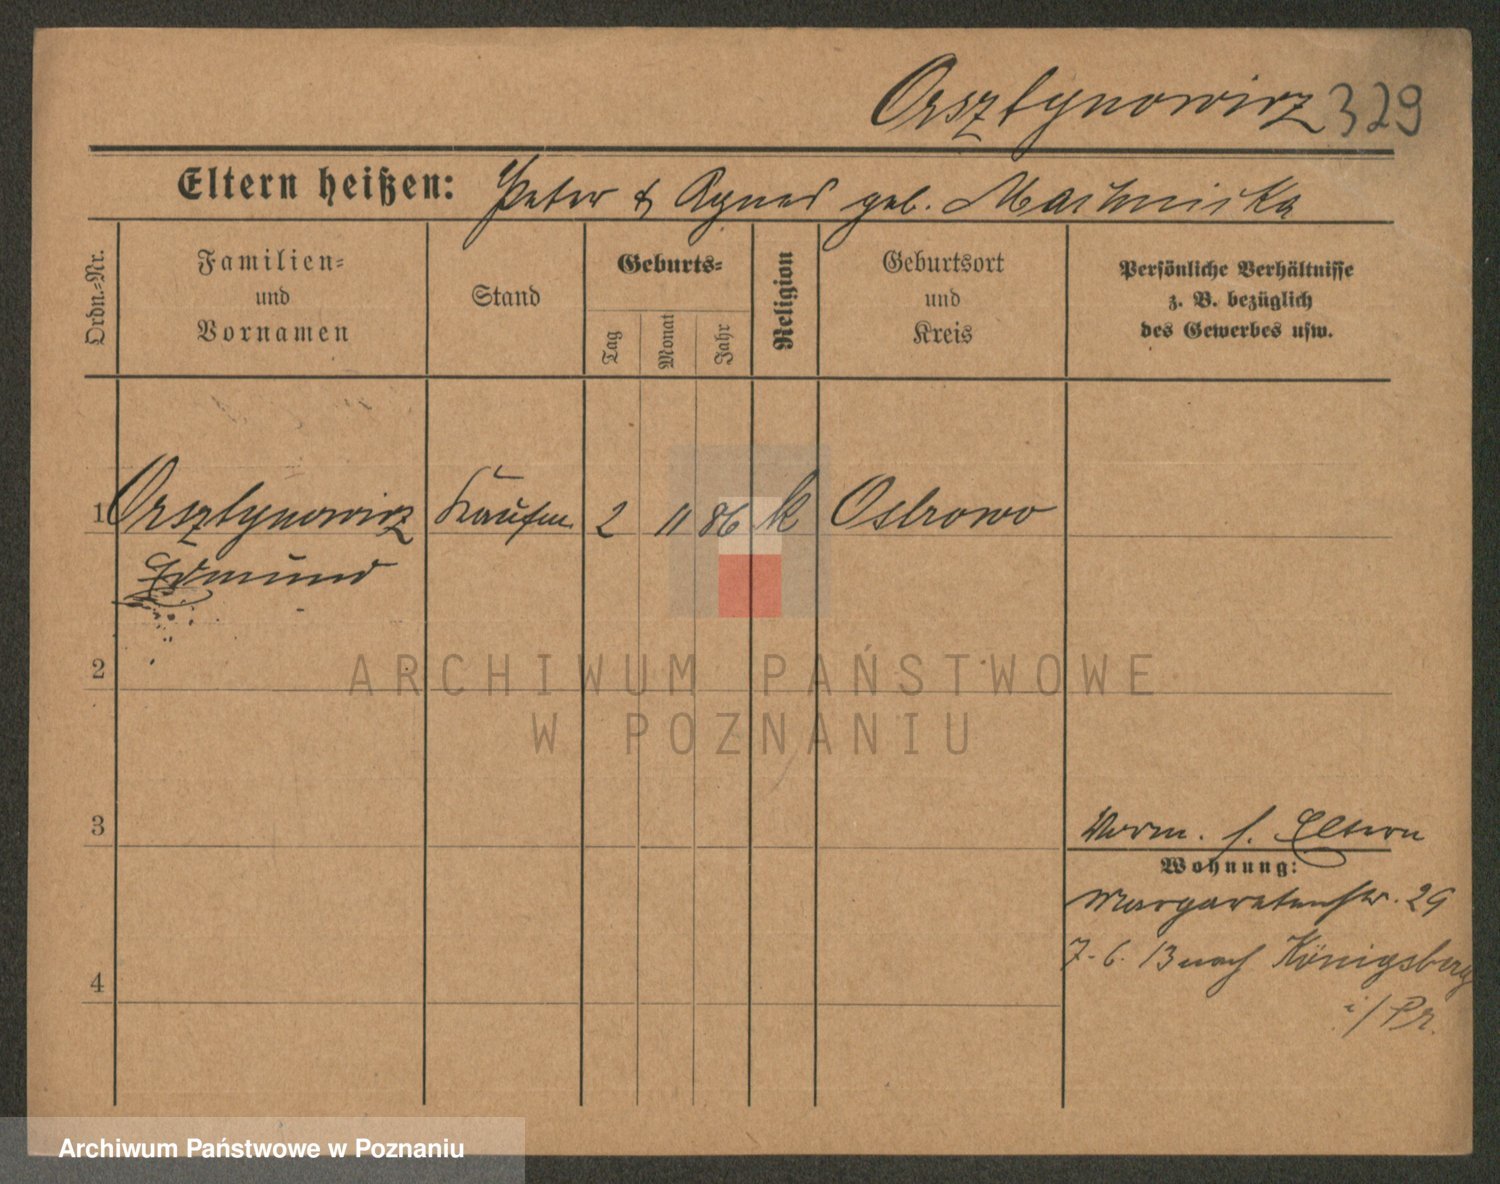 Orsztynowicz 329
Eltern heißen: Peter & Agnes geb.
Ordn.-Nr.
Familien-
und
Vornamen
Stand
Geburts-
Tag
Monat
Jahr
Religion
Geburtsort
und
Kreis
Persönliche Verhältnisse
z. B. bezüglich
des Gewerbes usw.
1 Orsztynowicz Kaufm. 2 11 86 k Ostrowo
Edmund
2
ARCHIWUM PAŃSTWOWE
W POZNANIU
3
Verm. s. Eltern
Wohnung:
Margaretenstr. 29
7. 6. 13 nach Königsberg
i/Pr.
4
Archiwum Państwowe w Poznaniu